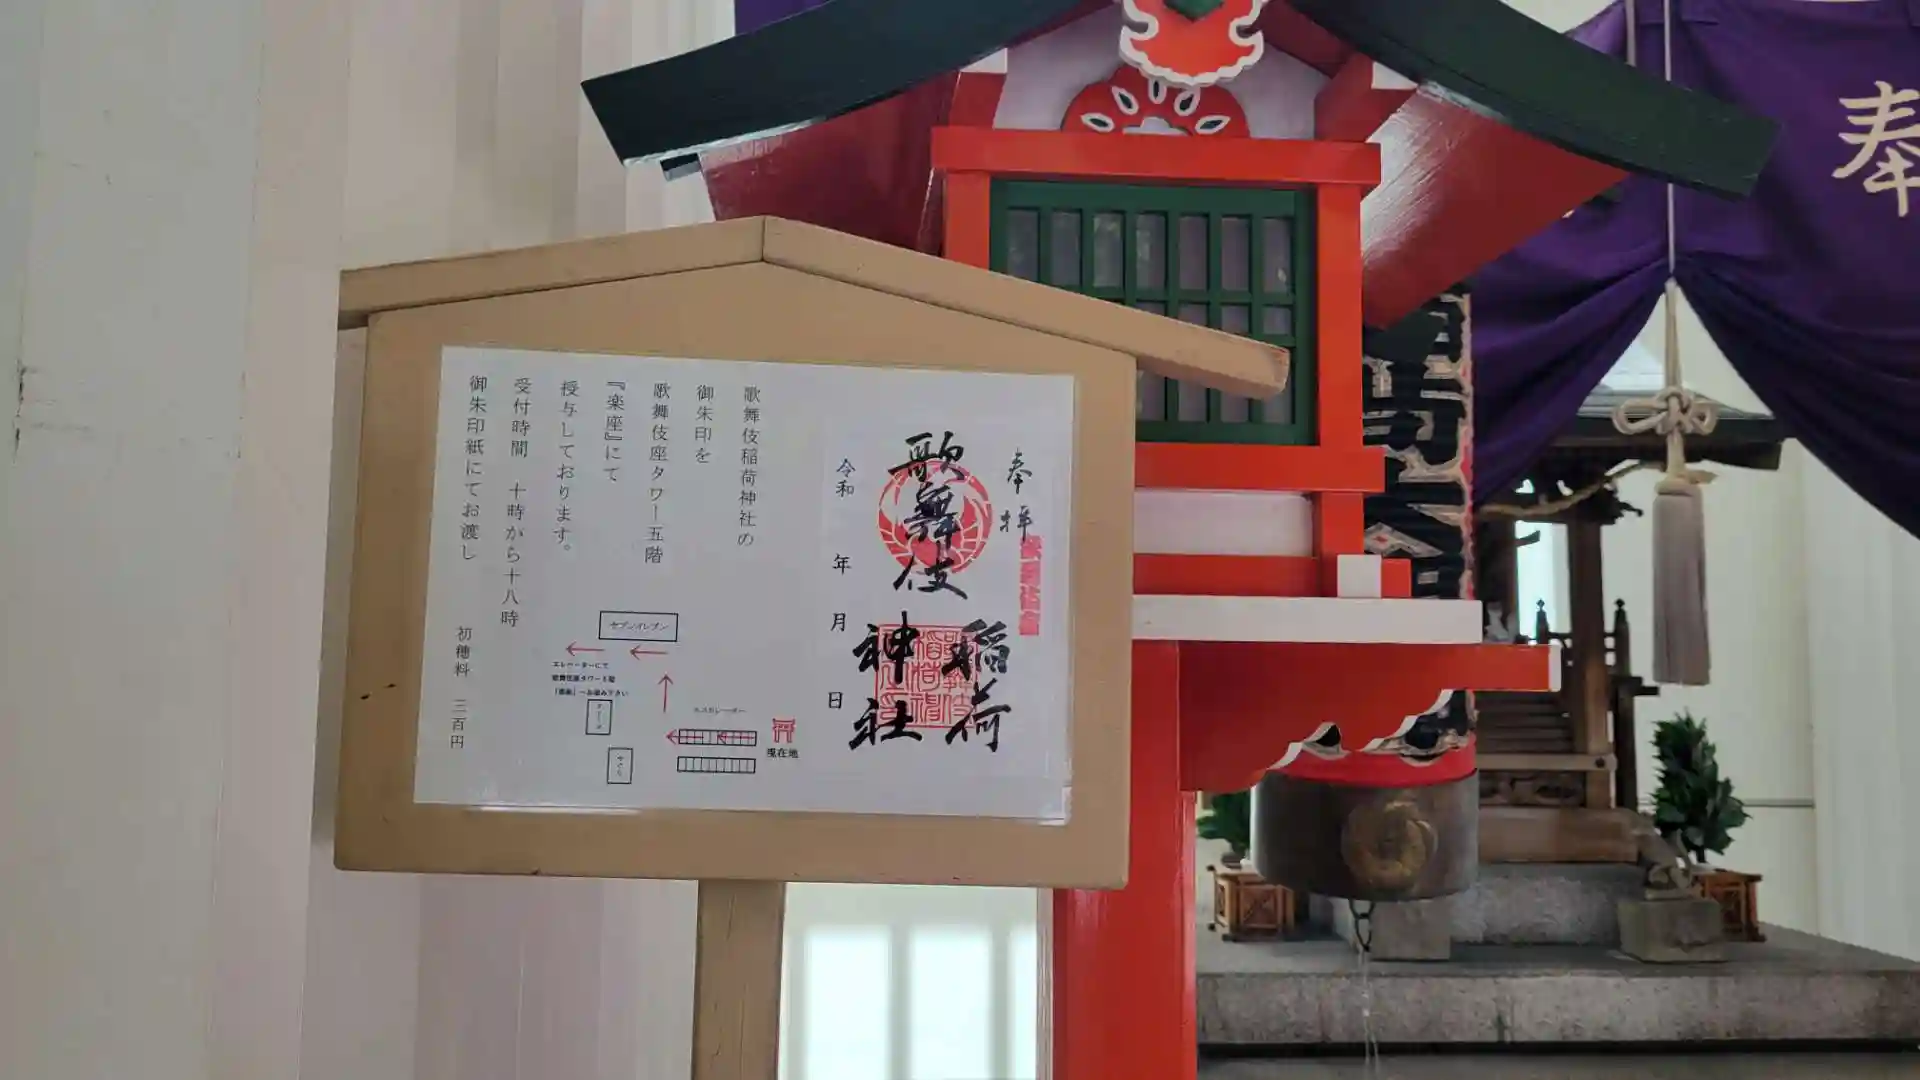 奉
奉拝
歌舞伎
稲荷
神社
令和 年 月 日
歌舞伎稲荷神社の
御朱印を
歌舞伎座タワー五階
『楽座』にて
授与しております。
受付時間 十時から十八時
御朱印紙にてお渡し 初穂料 三百円
セブンイレブン
エレベーターにて
歌舞伎座タワー5階
エスカレーター
現在地